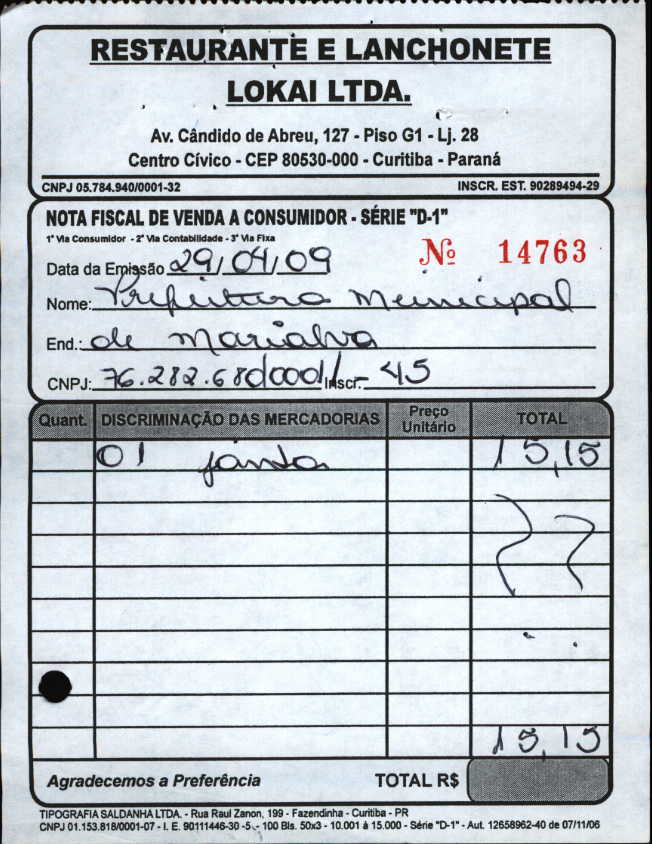 RESTAURANTE E LANCHONETE
LOKAI LTDA.
Av. Cândido de Abreu, 127 - Piso G1 - Lj. 28
Centro Cívico - CEP 80530-000 - Curitiba - Paraná
CNPJ 05.784.940/0001-32 INSCR. EST. 90289494-29
NOTA FISCAL DE VENDA A CONSUMIDOR - SÉRIE "D-1"
1ª Via Consumidor - 2ª Via Contabilidade - 3ª Via Fixa
Nº 14763
Data da Emissão 29/04/09
Nome: Prefeitura Municipal
End.: de Marialva
CNPJ: 76.282.680/0001/ Inscr. - 45
Quant. DISCRIMINAÇÃO DAS MERCADORIAS Preço Unitário TOTAL
01 janta 15,15
15,15
Agradecemos a Preferência TOTAL R$
TIPOGRAFIA SALDANHA LTDA. - Rua Raul Zanon, 199 - Fazendinha - Curitiba - PR
CNPJ 01.153.818/0001-07 - I. E. 90111446-30 -5 - 100 Bls. 50x3 - 10.001 à 15.000 - Série "D-1" - Aut. 12658962-40 de 07/11/06